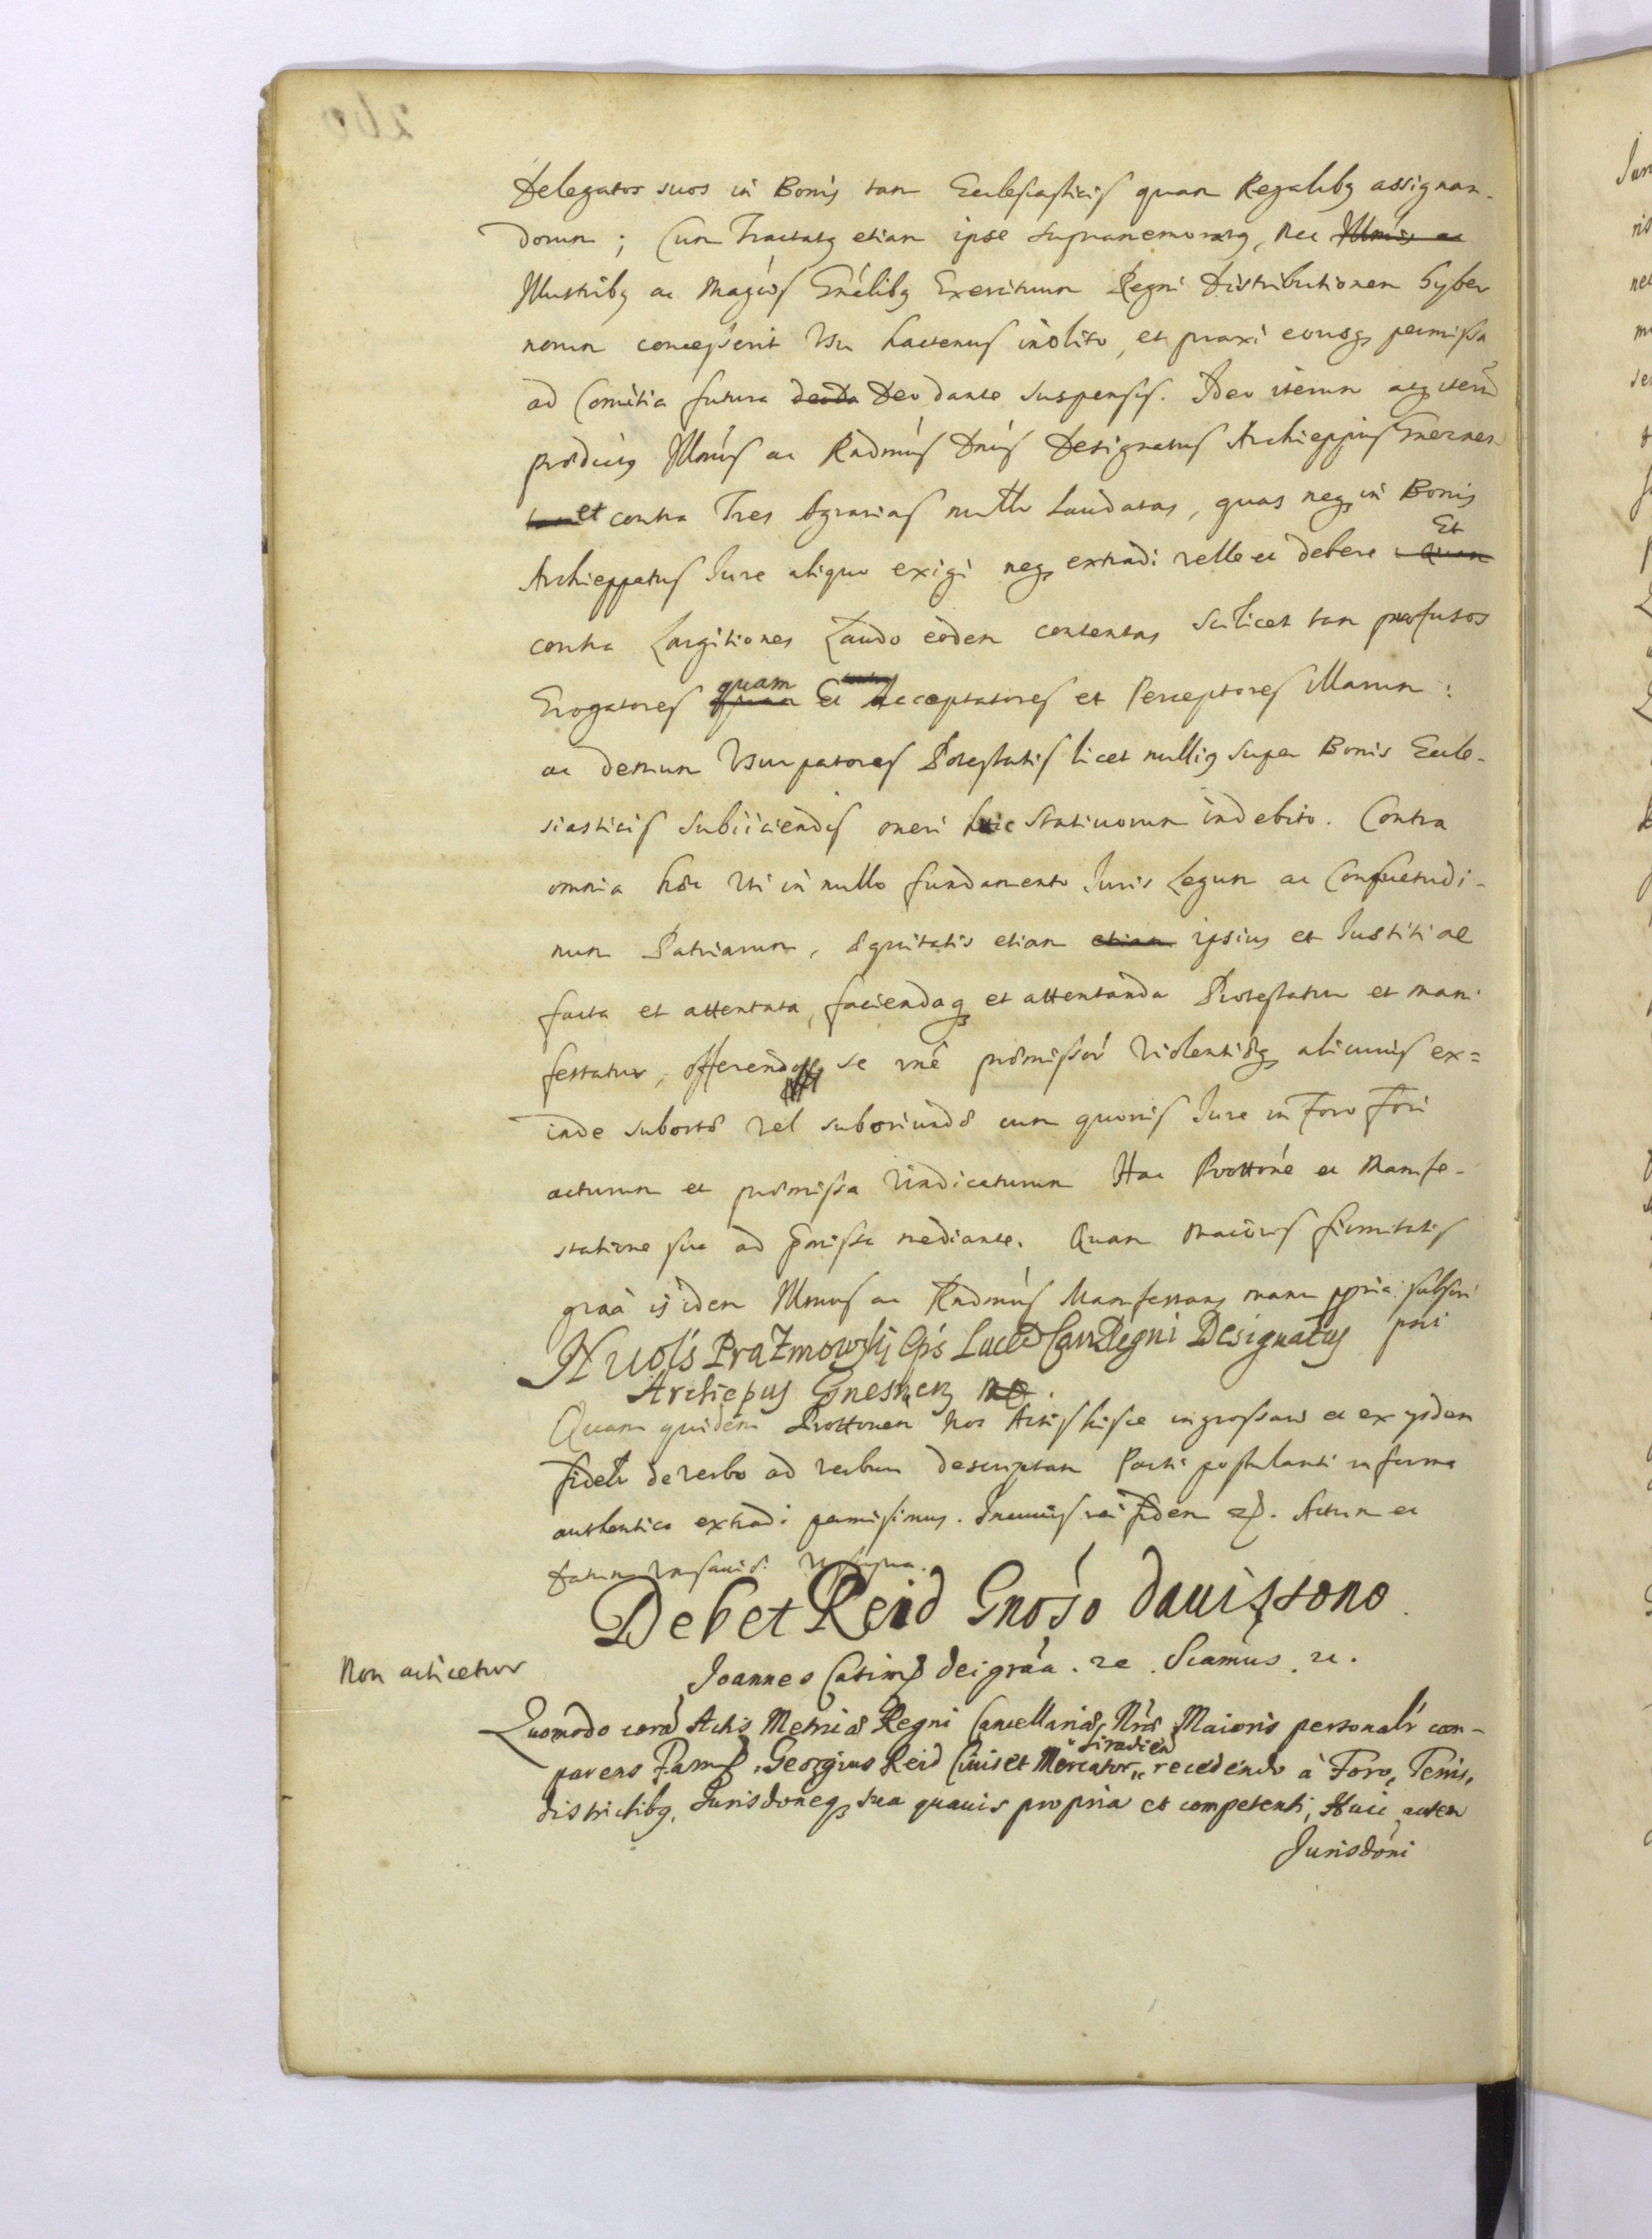 Delegatos suos in Bonis tam Ecclesiasticis quam Regalibq assignan-
dorum; Cum Tractatq etiam ipse supramemoratq, nec Illmis ac
Illustribq ac Magcis Gnélibq Exercituum Regni distributionem Hyber
norum concesserit Usu hactenus inolito, et praxi eousq permissa
ad Comitia futura deoda Deo dante suspensis. Ideo iterum atq iterũ
prædictq Illmus ac Rndmus Dnus Designatus Archieppus Gnesnen
tam et contra Tres Agrarias nullr laudatas, quas neq in Bonis
Archieppatus Jure aliquo exigi neq extradi velle et debere Et quam
contra Largitiones Laudo eodem contentas scilicet tam profusos
Erogatores quam quam et Acceptatores et Perceptores illarum:
ac demum Usurpatores Potestatis licet nulliq super Bonis Eccle-
siasticis subiiciendis oneri huic stativorum indebito. Contra
omnia hæc uti in nullo fundamento Juris Legum ac Consuetudi-
num Patriarum, æquitatis etiam etiam ipsius et Justitiae
facta et attentata, faciendaq et attentanda Protestatur et mani
festatur, offerendo se rné præmissorũ violentiæq alicuius ex=
inde subortæ vel suboriundæ cum quovis Jure in Foro Fori
acturum et præmissa vindicaturum Hac Prottone et Manife-
statione sua ad præmissa mediante. Quam maioris firmitatis
graã is idem Illmus ac Rndmus Manifestans manu ppria subscri
psit
N uols Prazmowskj Eps Luceo Can Regni Designatus
Archiepus Gnesnen mp.
Quam quidem Prottonem nos Actis hisce ingrossari et ex ijsdem
fidelr de verbo ad verbum descriptam Parti postulanti in forma
authentica extradi permisimus. In cuius rei fidem &. Actum et
datum Varsaviæ. ut supra.
Debet Reid Gnoso Davissono
Non acticetur
Joannes Casimq dei graã. &c. Scamus. &c.
Quomodo corã Actis Metricæ Regni Cancellariæ Nræ Maioris personalr com-
parens Famq. Georgius Reid Civis et Mercator Siradien recedendo à Foro, Terris,
districtibq, Jurisdoneq sua quavis propria et competenti, Huic autem
Jurisdoni